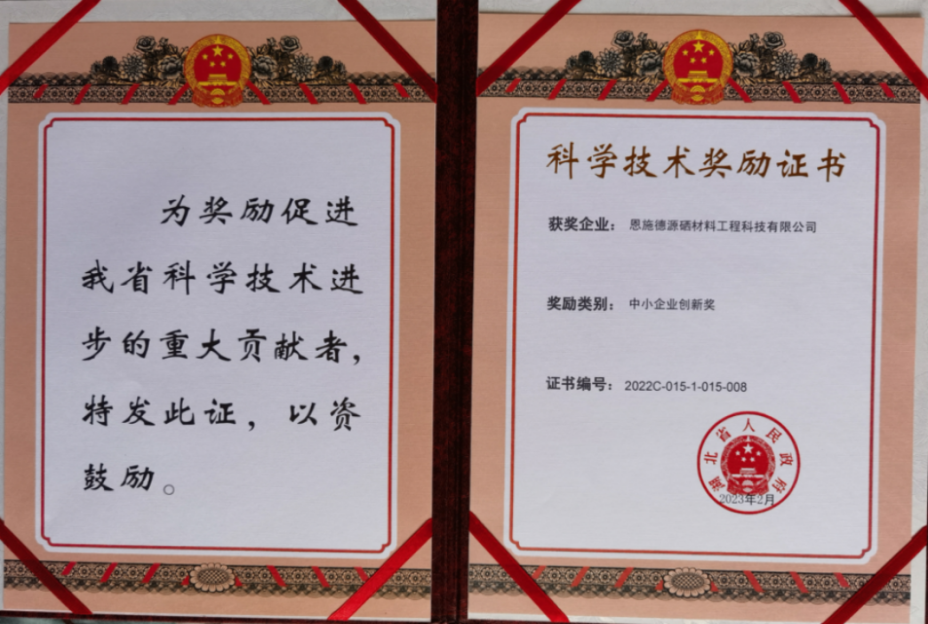 为奖励促进
我省科学技术进
步的重大贡献者，
特发此证，以资
鼓励。
科学技术奖励证书
获奖企业：恩施德源硒材料工程科技有限公司
奖励类别：中小企业创新奖
证书编号：2022C-015-1-015-008
湖北省人民政府
2023年2月